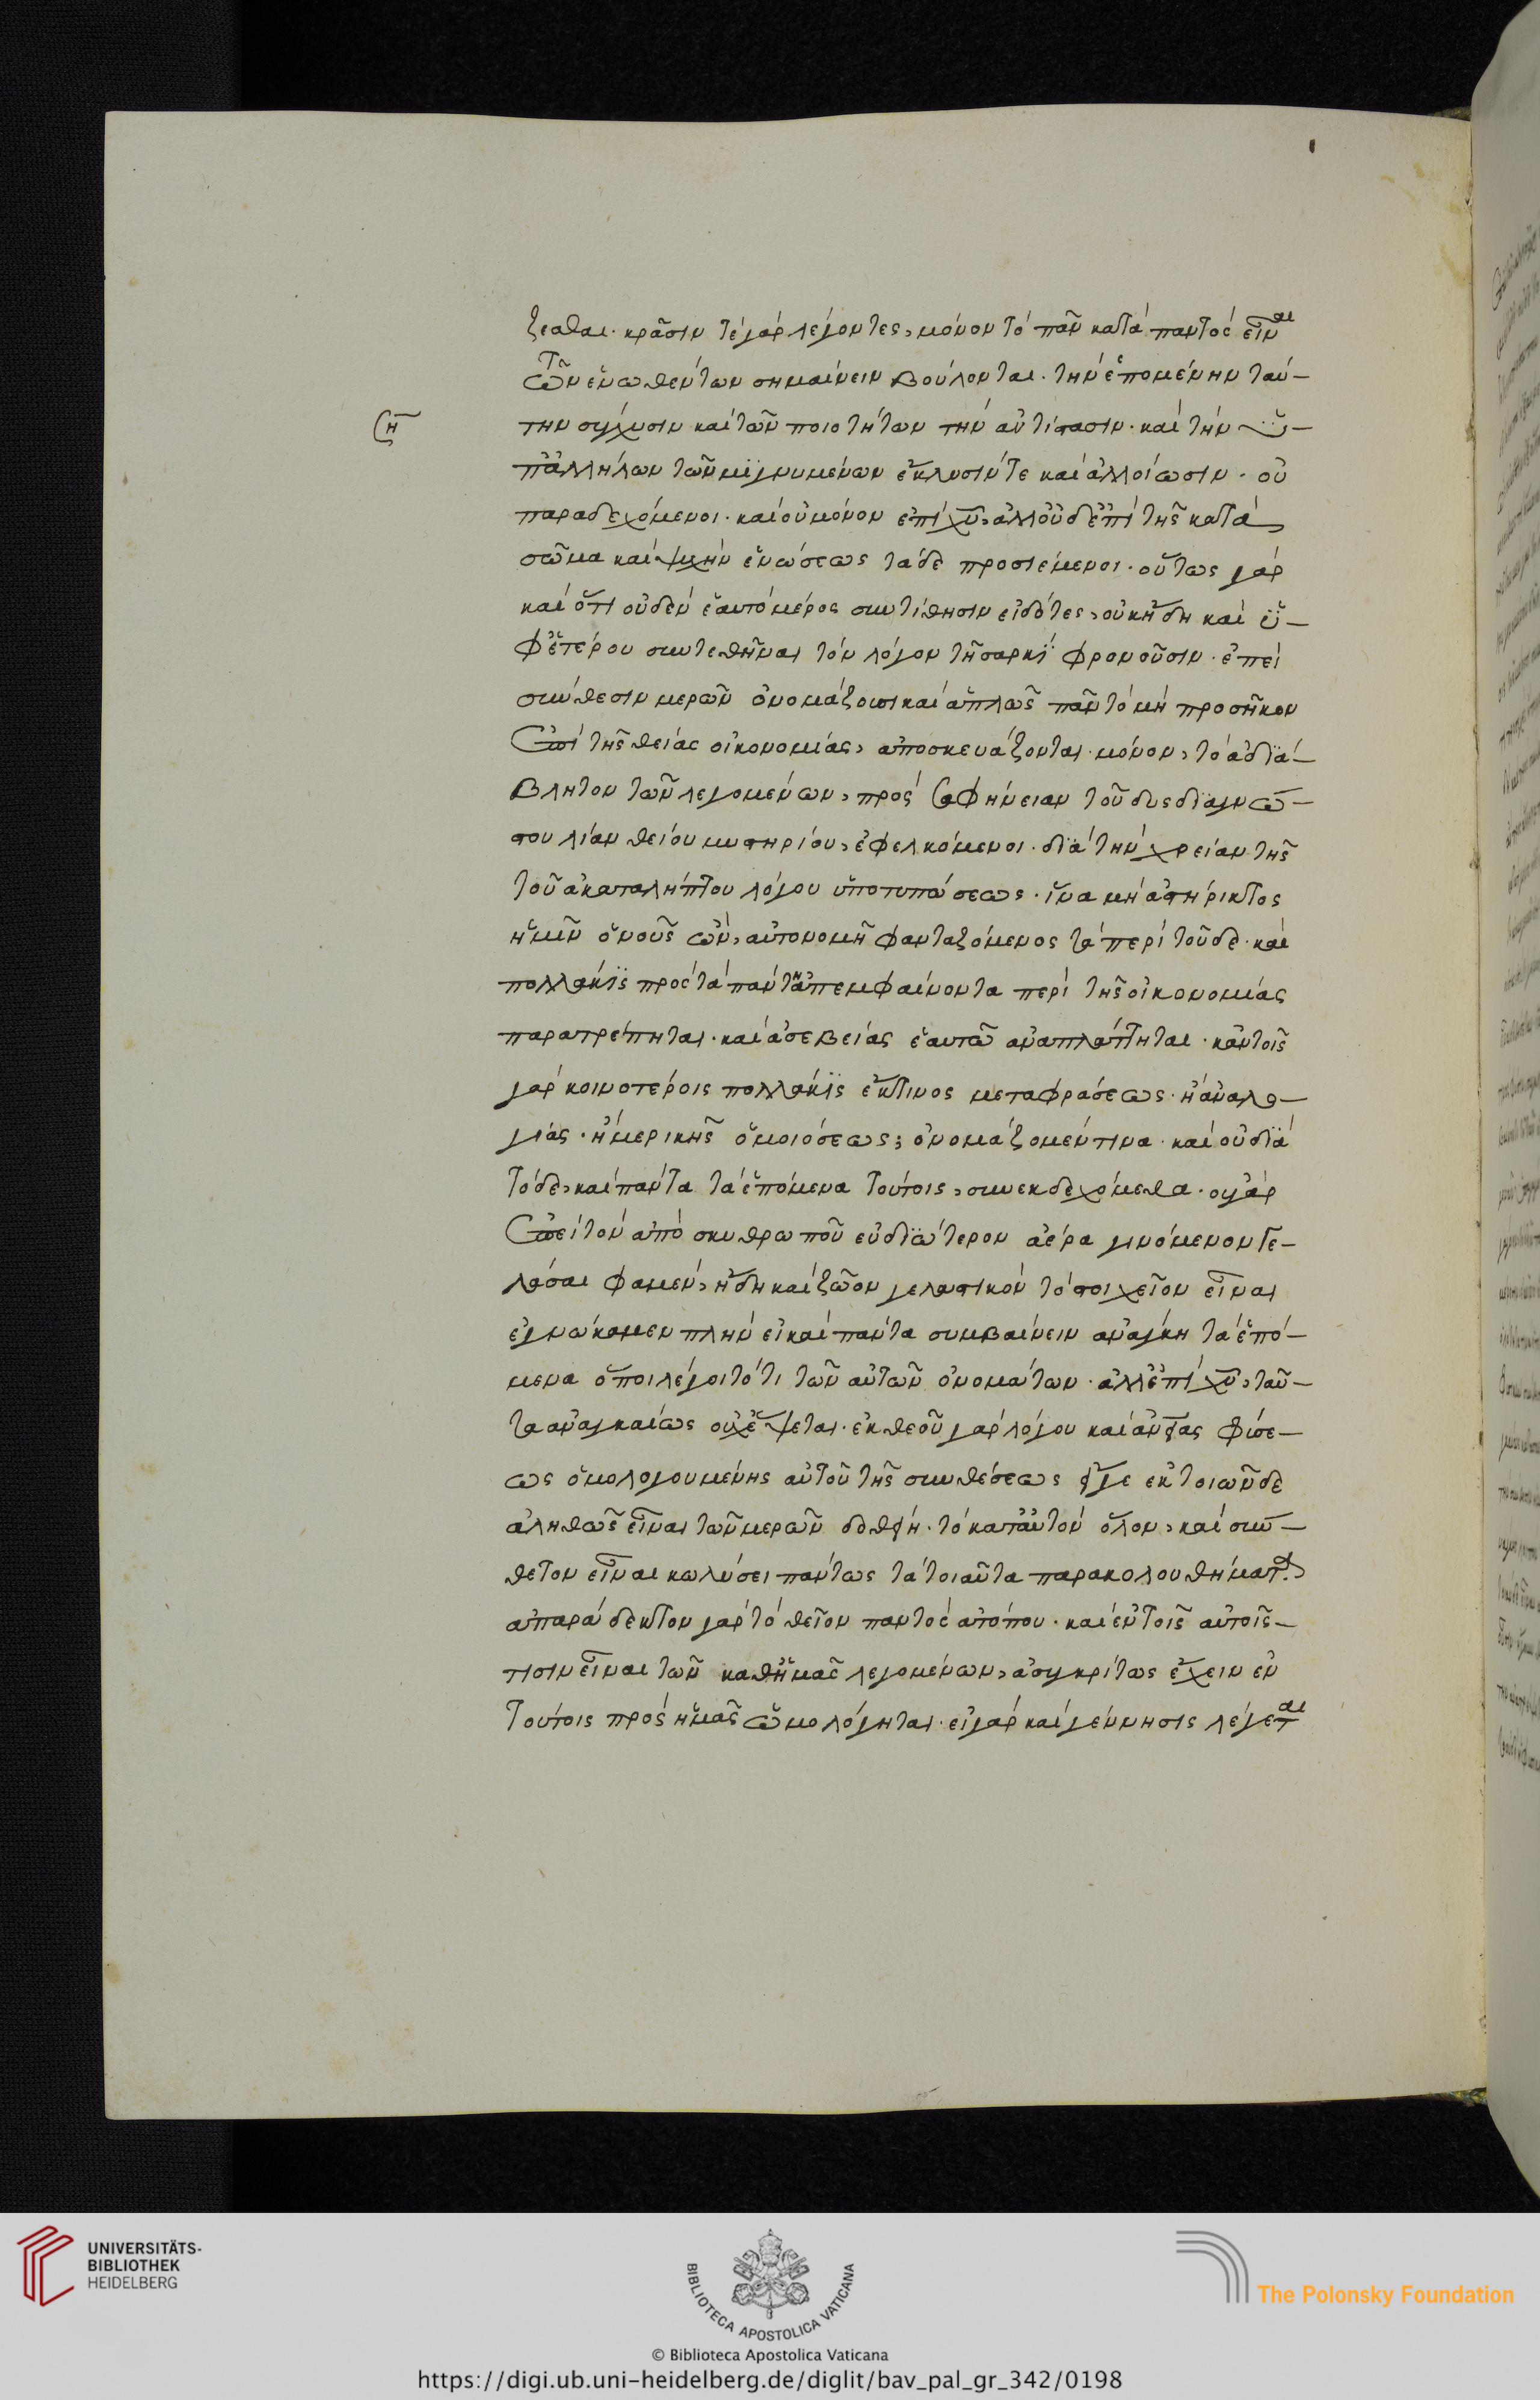 ζεσθαι· κρᾶσιν τὲ γὰρ λέγοντες, μόνον τὸ πᾶν κατὰ παντὸς εἶναι
τῶν ἑνωθέντων σημαίνειν βούλονται· τὴν ἑπομένην ταύ-
την σύγχυσιν καὶ τῶν ποιοτήτων τὴν ἀντίστασιν· καὶ τὴν ὑ-
π' ἀλλήλων τῶν μιγνυμένων ἔκλυσίν τε καὶ ἀλλοίωσιν· οὐ
παραδεχόμενοι· καὶ οὐ μόνον ἐπὶ χῦ, ἀλλ' οὐδ' ἐπὶ τῆς κατὰ
σῶμα καὶ ψυχὴν ἑνώσεως τάδε προσιέμενοι· οὕτως γὰρ
καὶ ὅτι οὐδὲν ἑαυτὸ μέρος συντίθησιν εἰδότες, οὐκ ἤδη καὶ ὑ-
φ' ἑτέρου συντεθῆναι τὸν λόγον τῆ σαρκὶ φρονοῦσιν· ἐπεὶ
σύνθεσιν μερῶν ὀνομάζουσι καὶ ἁπλῶς πᾶν τὸ μὴ προσῆκον
ἐπὶ τῆς θείας οἰκονομίας, ἀποσκευάζονται· μόνον, τὸ ἀδιά-
βλητον τῶν λεγομένων, πρὸς σαφήνειαν τοῦ δυσδιαγνώ-
στου λίαν θείου μυστηρίου, ἐφελκόμενοι· διὰ τὴν χρείαν τῆς
τοῦ ἀκαταλήπτου λόγου ὑποτυπώσεως· ἵνα μὴ ἀστήρικτος
ἡμῖν ὁ νοῦς ὢν, αὐτονομῆ φανταζόμενος τὰ περὶ τοῦδε· καὶ
πολλάκις πρὸς τὰ πάντη ἀπεμφαίνοντα περὶ τῆς οἰκονομίας
παρατρέπηται· καὶ ἀσεβείας ἑαυτῶ ἀναπλάττηται· κἀν τοῖς
γὰρ κοινοτέροις πολλάκις ἔκ τινος μεταφράσεως· ἢ ἀναλο-
γίας· ἢ μερικῆς ὁμοιόσεως; ὀνομάζομέν τινα· καὶ οὐ διὰ
τόδε, καὶ πάντα τὰ ἑπόμενα τούτοις, συνεκδεχόμεθα· οὐ γὰρ
ἐπεὶ τὸν ἀπὸ σκυθρωποῦ εὐδιώτερον ἀέρα γινόμενον γε-
λάσαι φαμέν, ἤδη καὶ ζῶον γελαστικὸν τὸ στοιχεῖον εἶναι
ἐγνώκαμεν πλὴν εἰ καὶ πάντα συμβαίνειν ἀνάγκη τὰ ἑπό-
μενα ὅποι λέγοιτό τι τῶν αὐτῶν ὀνομάτων· ἀλλ' ἐπὶ χῦ, ταῦ-
τα ἀναγκαίως οὐχ ἕψεται· ἐκ θεοῦ γὰρ λόγου καὶ ἀν̅ας φύσε-
ως ὁμολογουμένης αὐτοῦ τῆς συνθέσεως εἴ γε ἐκ τοιῶνδε
ἀληθῶς εἶναι τῶν μερῶν δοθείη· τὸ κατ' αὐτὸν ὅλον, καὶ σύν-
θετον εἶναι κωλύσει πάντως τὰ τοιαῦτα παρακολουθήματα,
ἀπαράδεκτον γὰρ τὸ θεῖον παντὸς ἀτόπου· καὶ ἐν τοῖς αὐτοῖς-
τισιν εἶναι τῶν καθ' ἡμᾶς λεγομένων, ἀσυγκρίτως ἔχειν ἐν
τούτοις πρὸς ἡμᾶς ὡμολόγηται· εἰ γὰρ καὶ γέννησις λέγεται
UNIVERSITÄTS-
BIBLIOTHEK
HEIDELBERG
BIBLIOTECA APOSTOLICA VATICANA
The Polonsky Foundation
© Biblioteca Apostolica Vaticana
https://digi.ub.uni-heidelberg.de/diglit/bav_pal_gr_342/0198